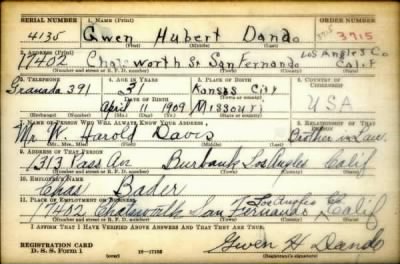 SERIAL NUMBER 1. NAME (Print)
4135 Gwen Hubert Dando 3715
(First) (Middle) (Last)
2. ADDRESS (Print)
17402 Chatsworth Sr San Fernando Los Angles Co Calif
(Number and street or R. F. D. number) (Town) (County) (State)
3. TELEPHONE 4. AGE IN YEARS 5. PLACE OF BIRTH 6. COUNTRY OF CITIZENSHIP
Granada 391 31 Kansas City
DATE OF BIRTH USA
April 11 1909 Missouri
(Mo.) (Day) (Yr.)
7. NAME OF PERSON WHO WILL ALWAYS KNOW YOUR ADDRESS 8. RELATIONSHIP OF THAT PERSON
Mr. W. Harold Davis Brother in Law.
(Mr., Mrs., Miss) (First) (Middle) (Last)
9. ADDRESS OF THAT PERSON
1313 Pass Av Burbank Los Angles Calif
(Number and street or R. F. D. number) (Town) (County) (State)
10. EMPLOYER'S NAME
Chas Bader
11. PLACE OF EMPLOYMENT OR BUSINESS Los Angles Co
17402 Chatsworth San Fernando Calif
(Number and street or R. F. D. number) (Town) (County) (State)
I AFFIRM THAT I HAVE VERIFIED ABOVE ANSWERS AND THAT THEY ARE TRUE.
REGISTRATION CARD
D. S. S. Form 1 16-17105 Gwen H Dando
(Registrant's signature)